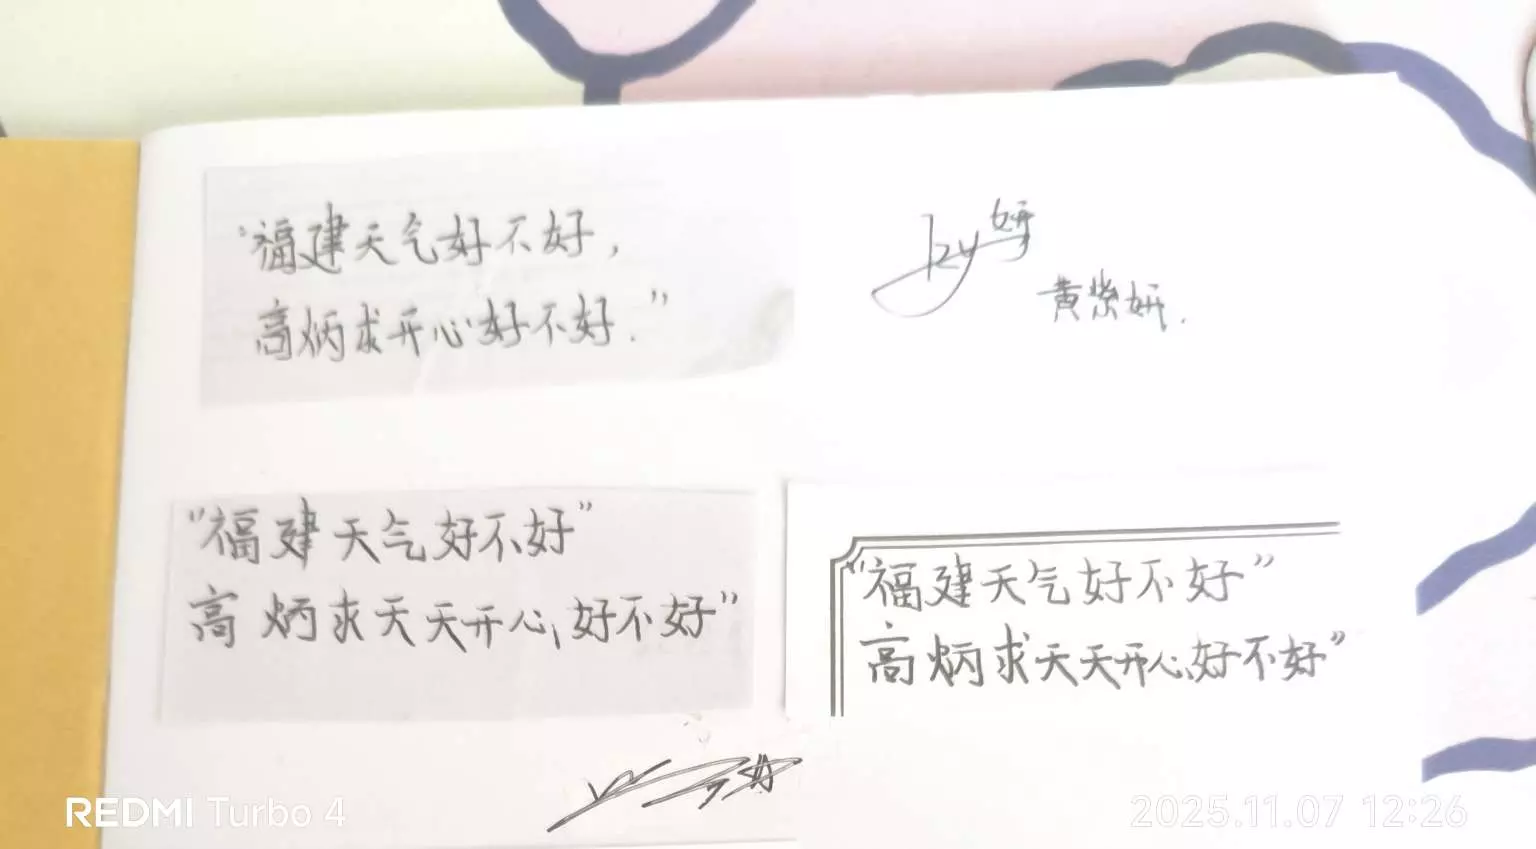 “福建天气好不好，
高炳求开心好不好.”
妍
黄紫妍.
“福建天气好不好”
高炳求天天开心,好不好”
“福建天气好不好”
高炳求天天开心,好不好”
REDMI Turbo 4
2025.11.07 12:26